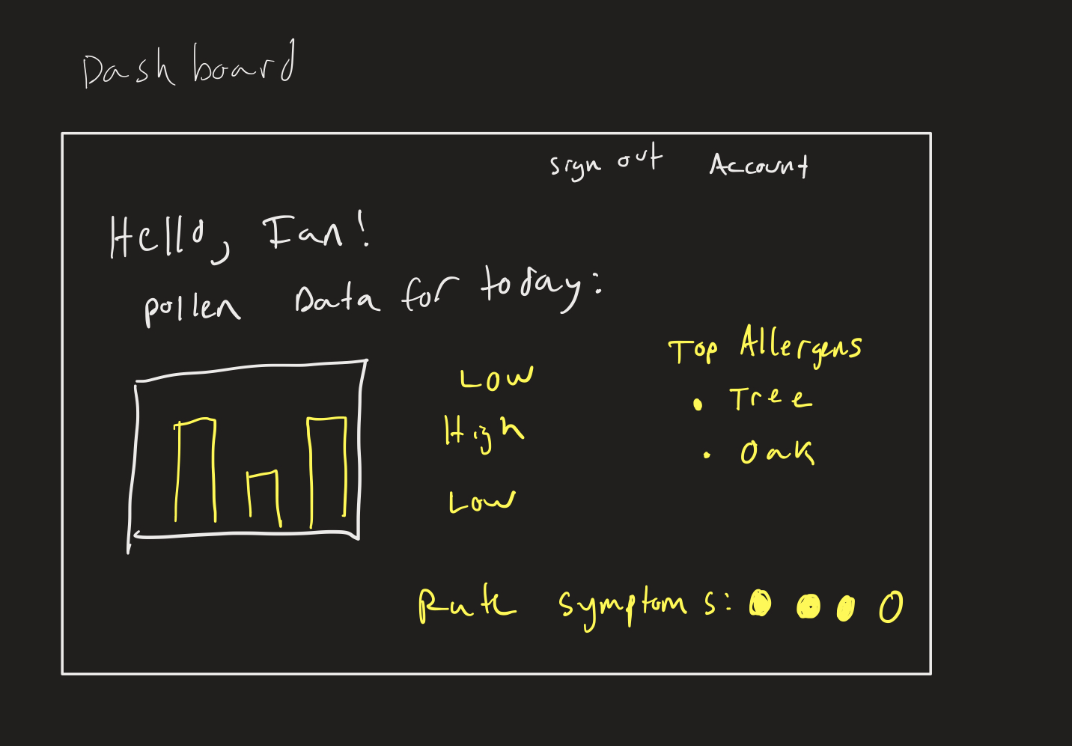 Dashboard
sign out Account
Hello, Ian!
pollen Data for today:
Low
High
Low
Top Allergens
• Tree
• Oak
Rate symptoms: